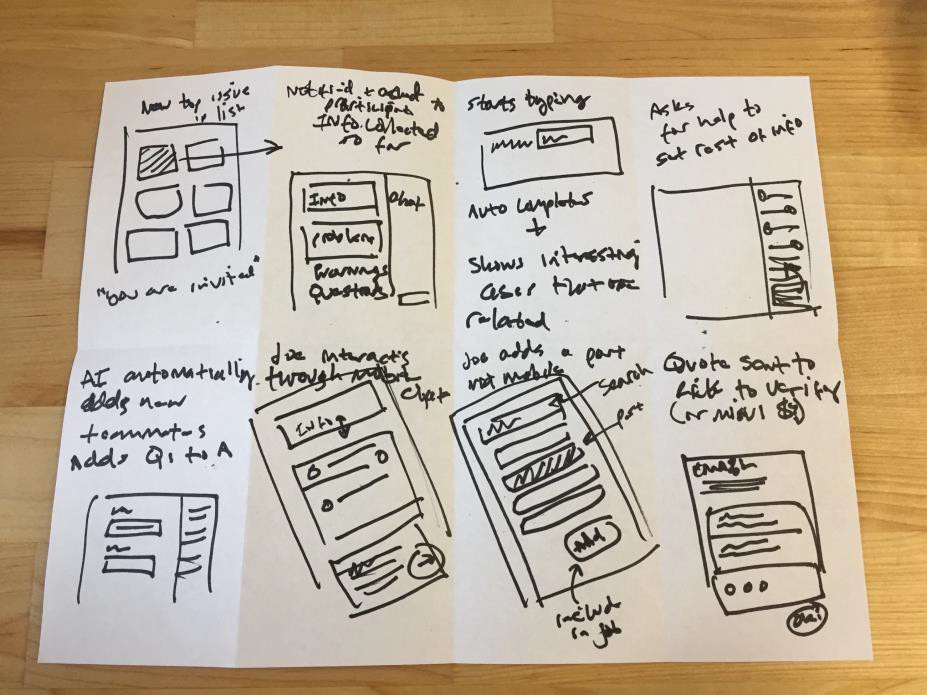 New top issue
in list
"You are invited"
Notified + asked to
participate
Info collected
so far
INFO
Chat
Problem
Warnings
Questions
starts typing
Auto completes
+
Shows interesting
cases that are
related
Asks
for help to
set rest of info
AI automatically
adds new
teammates
Adds Qs to A
Joe interacts
through mobile
chat
Info
Joe adds a part
via mobile
search
part
Add
include
in job
Quote sent to
to verify
(or minor $$)
EMAIL